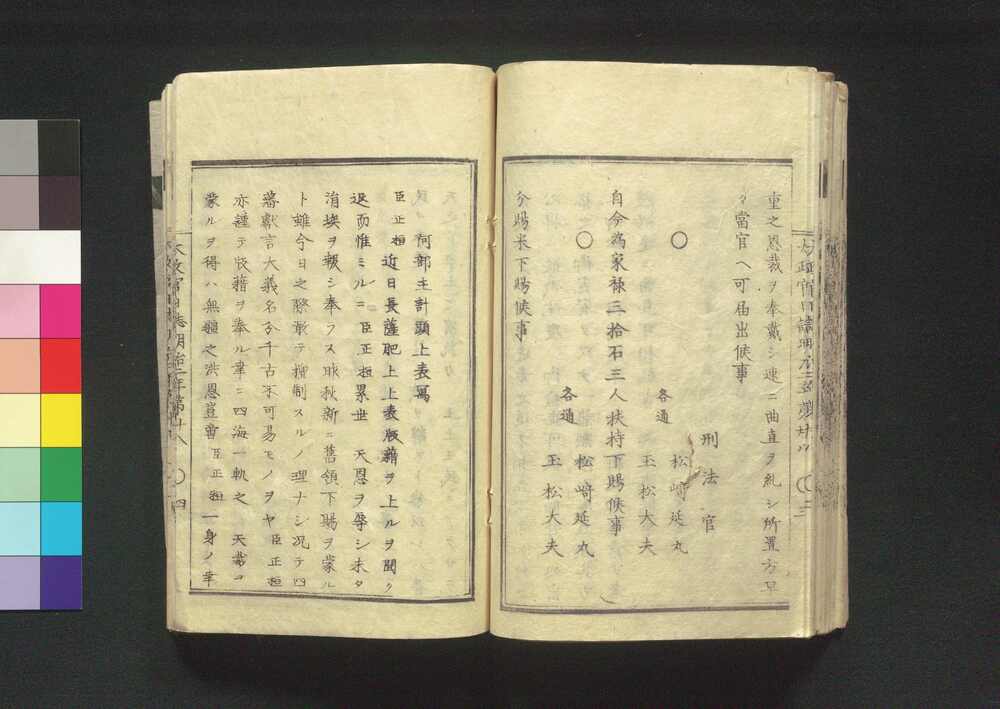 重之恩裁ヲ奉戴シ速ニ曲直ヲ糺シ所置方早
々當官ヘ可届出候事
刑法官
○
松﨑延丸
各通
玉松大夫
自今為家祿三拾石三人扶持下賜候事
○
松﨑延丸
各通
玉松大夫
分賜米下賜候事
阿部主計頭上表寫
臣正桓近日長薩肥土上表版籍ヲ上ルヲ聞ク
退而惟ミルニ臣正桓累世 天恩ヲ辱シ未タ
涓埃ヲ報シ奉ラス昨秋新ニ舊領下賜ヲ蒙ル
ト雖今日之際敢テ擅制スルノ理ナシ况テ四
藩獻言大義名分千古不可易モノヲヤ臣正桓
亦謹テ版籍ヲ奉ル幸ニ四海一軌之 天裁ヲ
蒙ルヲ得ハ無疆之洪恩豈啻臣正桓一身ノ幸
太政官日誌明治二年第廿八 ○四